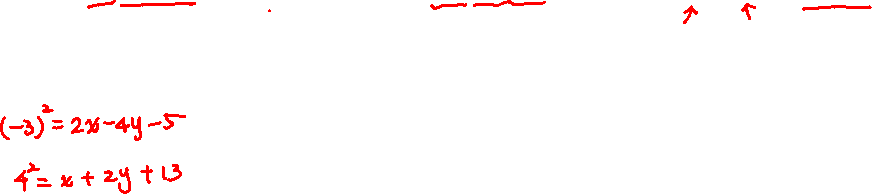 (-3)² = 2x-4y-5
4² = x + 2y + 13